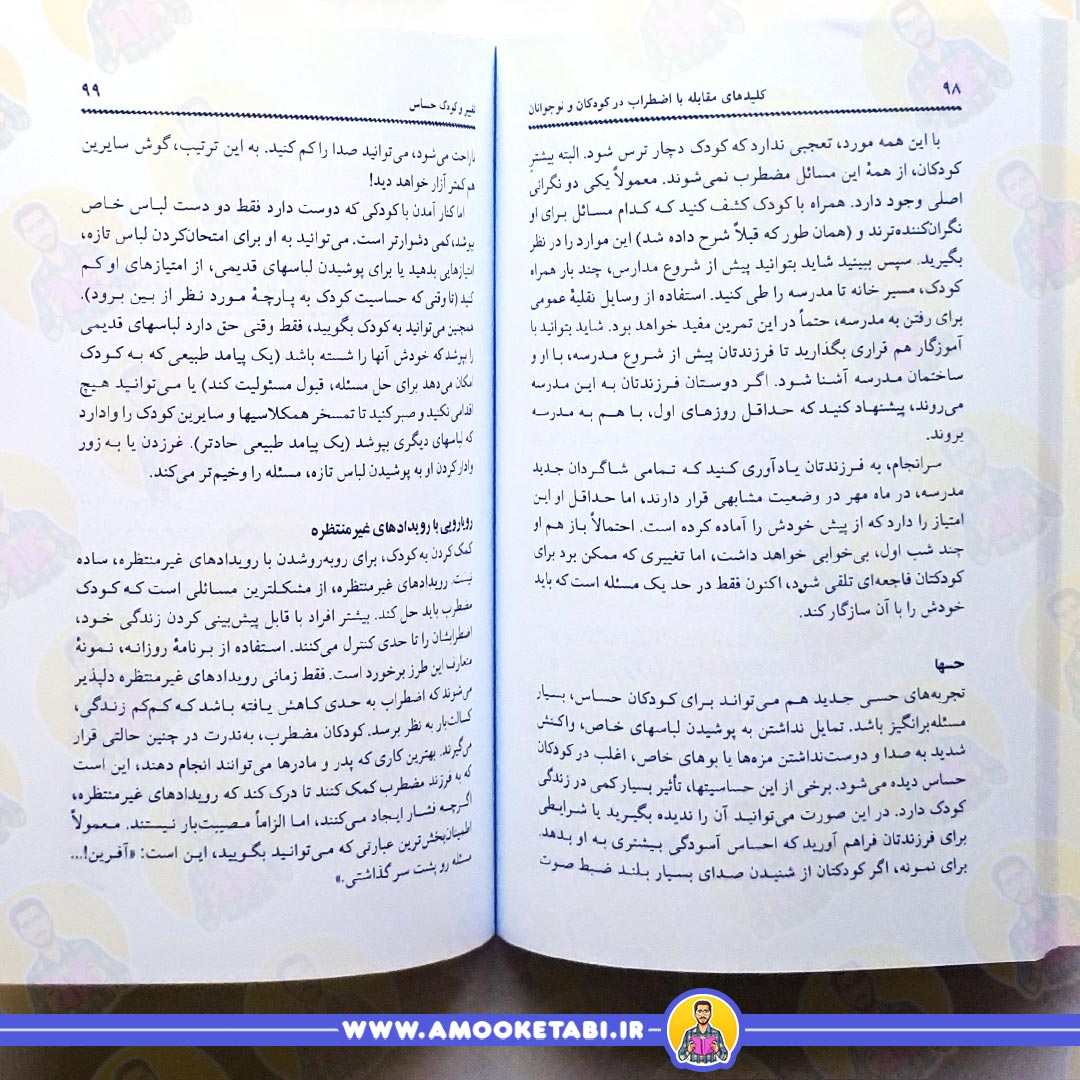 ۹۸
کلیدهای مقابله با اضطراب در کودکان و نوجوانان
با این همه مورد، تعجبی ندارد که کودک دچار ترس شود. البته بیشتر
کودکان، از همهٔ این مسائل مضطرب نمی‌شوند. معمولاً یکی دو نگرانی
اصلی وجود دارد. همراه با کودک کشف کنید که کدام مسائل برای او
نگران‌کننده‌ترند و (همان طور که قبلاً شرح داده شد) این موارد را در نظر
بگیرید. سپس ببینید شاید بتوانید پیش از شروع مدارس، چند بار همراه
کودک، مسیر خانه تا مدرسه را طی کنید. استفاده از وسایل نقلیهٔ عمومی
برای رفتن به مدرسه، حتماً در این تمرین مفید خواهد بود. شاید بتوانید با
آموزگار هم قراری بگذارید تا فرزندتان پیش از شروع مدرسه، با او و
ساختمان مدرسه آشنا شود. اگر دوستان فرزندتان به این مدرسه
می‌روند، پیشنهاد کنید که حداقل روزهای اول، با هم به مدرسه
بروند.
سرانجام، به فرزندتان یادآوری کنید که تمامی شاگردان جدید
مدرسه، در ماه مهر در وضعیت مشابهی قرار دارند، اما حداقل او این
امتیاز را دارد که از پیش خودش را آماده کرده است. احتمالاً باز هم او
چند شب اول، بی‌خوابی خواهد داشت، اما تغییری که ممکن بود برای
کودکتان فاجعه‌ای تلقی شود، اکنون فقط در حد یک مسئله است که باید
خودش را با آن سازگار کند.
حسها
تجربه‌های حسی جدید هم می‌تواند برای کودکان حساس، بسیار
مسئله‌برانگیز باشد. تمایل نداشتن به پوشیدن لباسهای خاص، واکنش
شدید به صدا و دوست‌نداشتن مزه‌ها یا بوهای خاص، اغلب در کودکان
حساس دیده می‌شود. برخی از این حساسیتها، تأثیر بسیار کمی در زندگی
کودک دارد. در این صورت می‌توانید آن را ندیده بگیرید یا شرایطی
برای فرزندتان فراهم آورید که احساس آسودگی بیشتری به او بدهد.
برای نمونه، اگر کودکتان از شنیدن صدای بسیار بلند ضبط صوت
۹۹
تغییر و کودک حساس
ناراحت می‌شود، می‌توانید صدا را کم کنید. به این ترتیب، گوش سایرین
هم کمتر آزار خواهد دید!
اما کنار آمدن با کودکی که دوست دارد فقط دو دست لباس خاص
بپوشد، کمی دشوارتر است. می‌توانید به او برای امتحان‌کردن لباس تازه،
امتیازهایی بدهید یا برای پوشیدن لباسهای قدیمی، از امتیازهای او کم
کنید (تا وقتی که حساسیت کودک به پارچهٔ مورد نظر از بین برود).
همچنین می‌توانید به کودک بگویید، فقط وقتی حق دارد لباسهای قدیمی
را بپوشد که خودش آنها را شسته باشد (یک پیامد طبیعی که به کودک
امکان می‌دهد برای حل مسئله، قبول مسئولیت کند) یا می‌توانید هیچ
اقدامی نکنید و صبر کنید تا تمسخر همکلاسیها و سایرین کودک را وادارد
که لباسهای دیگری بپوشد (یک پیامد طبیعی حادتر). غرزدن یا به زور
وادار کردن او به پوشیدن لباس تازه، مسئله را وخیم‌تر می‌کند.
رویارویی با رویدادهای غیرمنتظره
کمک کردن به کودک، برای روبه‌روشدن با رویدادهای غیرمنتظره، ساده
نیست. رویدادهای غیرمنتظره، از مشکلترین مسائلی است که کودک
مضطرب باید حل کند. بیشتر افراد با قابل پیش‌بینی کردن زندگی خود،
اضطرابشان را تا حدی کنترل می‌کنند. استفاده از برنامهٔ روزانه، نمونهٔ
متعارف این طرز برخورد است. فقط زمانی رویدادهای غیرمنتظره دلپذیر
می‌شوند که اضطراب به حدی کاهش یافته باشد که کم‌کم زندگی،
کسالت‌بار به نظر برسد. کودکان مضطرب، به‌ندرت در چنین حالتی قرار
می‌گیرند. بهترین کاری که پدر و مادرها می‌توانند انجام دهند، این است
که به فرزند مضطرب کمک کنند تا درک کند که رویدادهای غیرمنتظره،
اگرچه فشار ایجاد می‌کنند، اما الزاماً مصیبت‌بار نیستند. معمولاً
اطمینان‌بخش‌ترین عبارتی که می‌توانید بگویید، این است: «آفرین!...
مسئله رو پشت سر گذاشتی.»
WWW.AMOOKETABI.IR